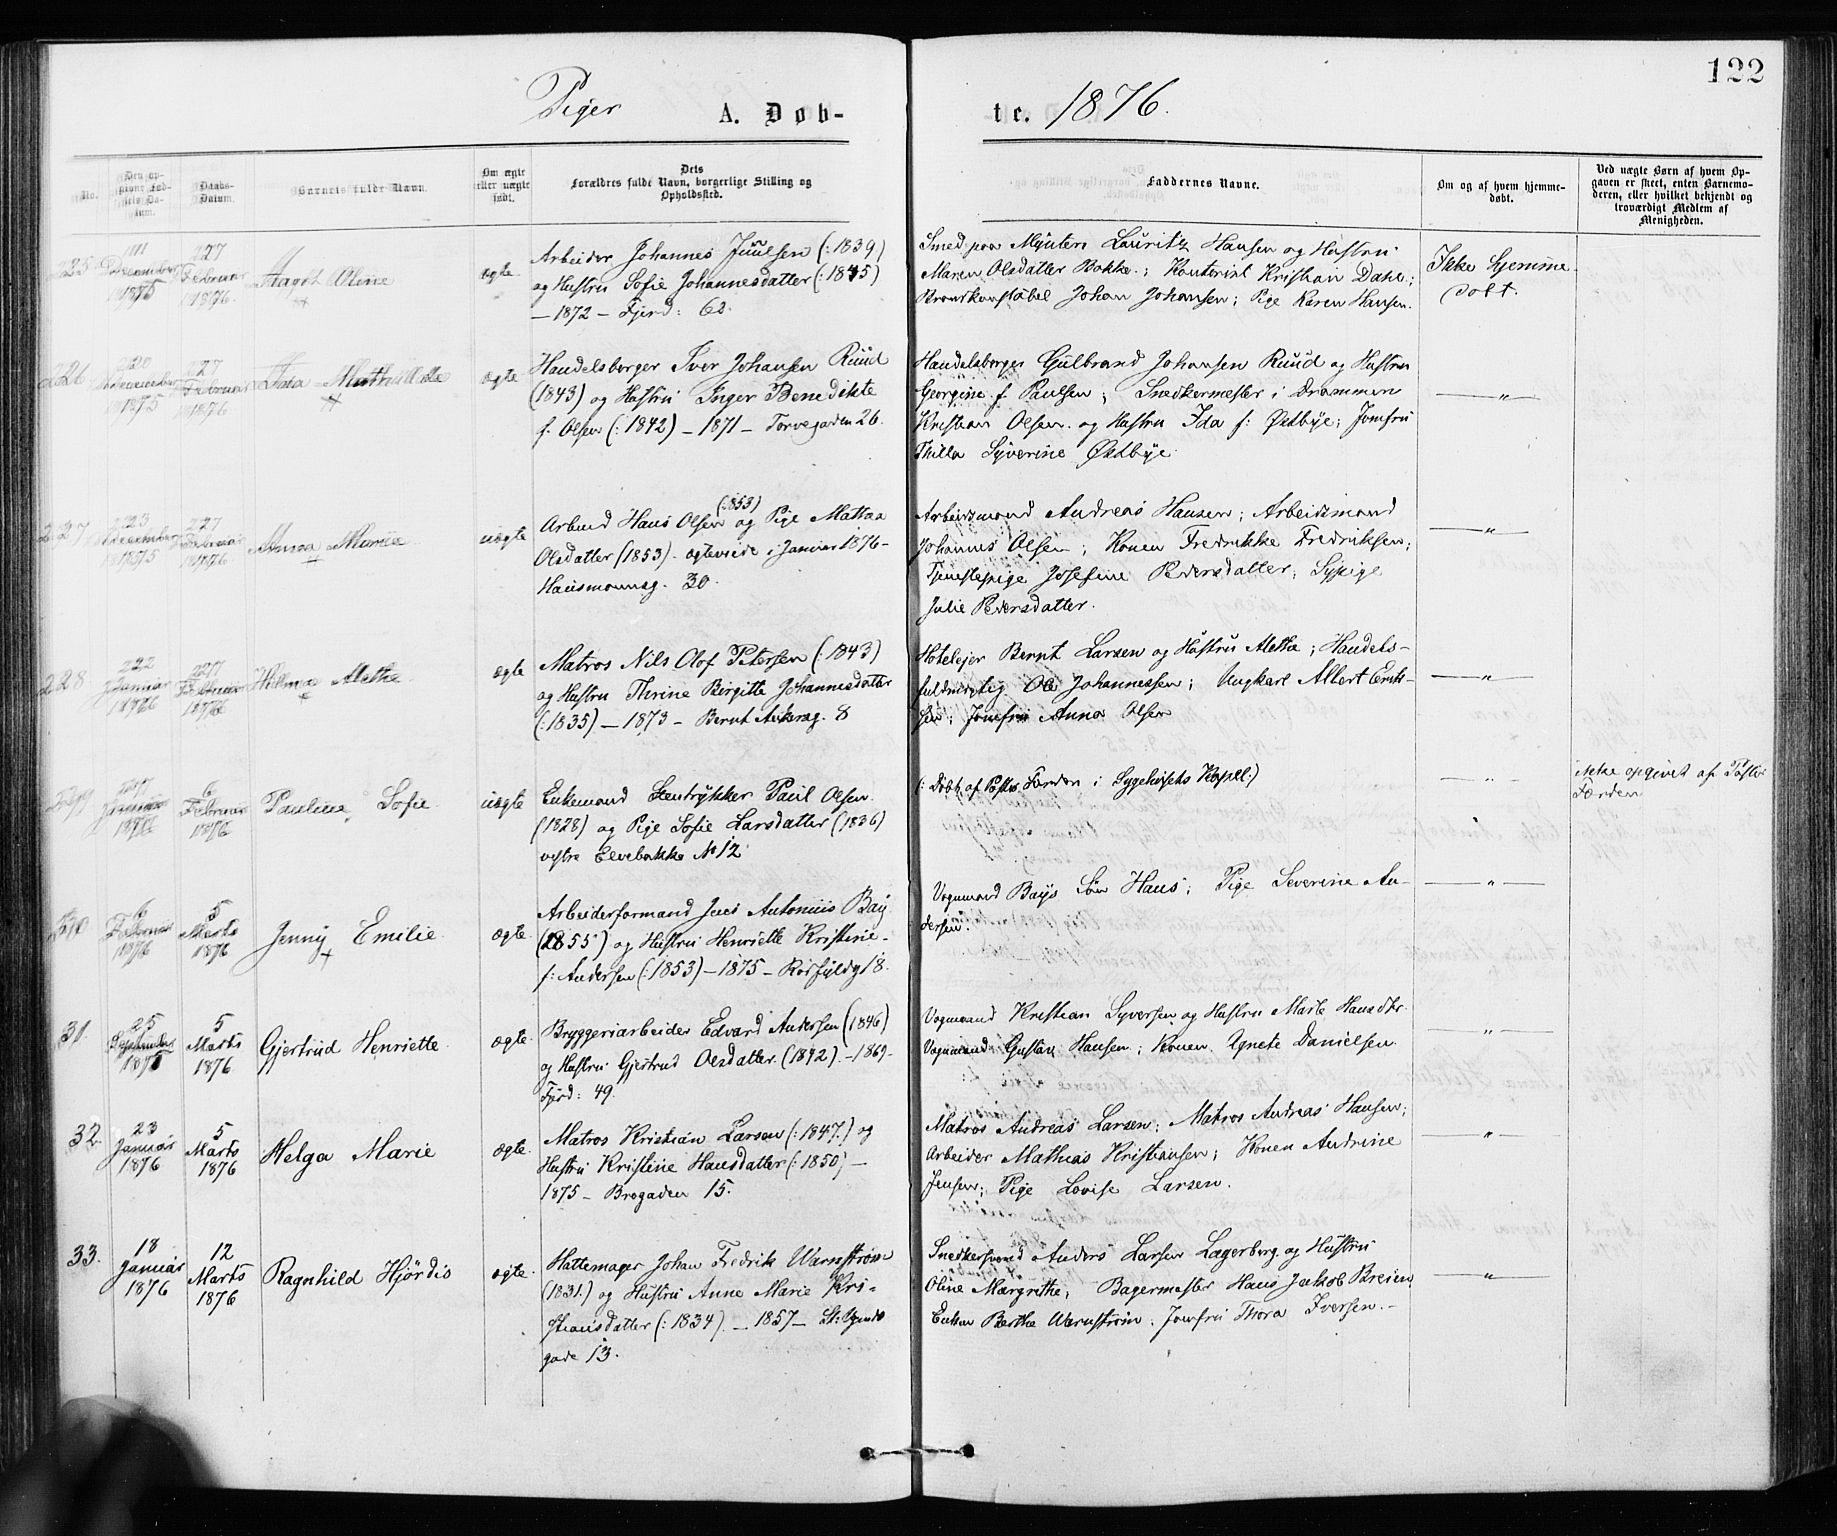 122
Piger A. Døb-
te. 1876.
No.
Den op-
givne Fød-
sels Da-
tum.
Daabs-
Datum.
Barnets fulde Navn.
Om ægte
eller uægte
født.
Dets
Forældres fulde Navn, borgerlige Stilling og
Opholdssted.
Faddernes Navne.
Om og af hvem hjemme-
døbt.
Ved uægte Børn af hvem Op-
gaven er skeet, enten Barnemo-
deren, eller hvilket bekjendt og
troværdigt Medlem af
Menigheden.
25
December
1875
27
Februar
1876
Aagot Oline
ægte
Arbeider Johannes Juulsen (: 1839)
og Hustru Sofie Johannesdatter (: 1845)
— 1872 — Fjerd: 62.
Smed paa Mynten Lauritz Hansen og Hustru
Maren Olsdatter Bakke.; Kontorist Kristian Dahl;
Brandkonstabel Johan Johansen; Pige Karen Hansen.
Ikke hjemme
døbt.
26
20
December
1875
27
Februar
1876
Ida Mathilde
ægte
Handelsborger Iver Johansen Ruud
(1843) og Hustru Inger Benedikte
f. Olsen (: 1842) — 1871 — Torvegaden 26.
Handelsborger Gulbrand Johansen Ruud og Hustru
Georgine f. Paulsen; Snedkermester i Drammen
Kristian Olsen og Hustru Ida f: Østbye; Jomfru
Thilla Syverine Østbye
— " —
27
23
December
1875
27
Februar
1876
Anna Marie
uægte
Arbmd Hans Olsen (:1853) og Pige Mattea
Olsdatter (1853) - ægteviede i Januar 1876 -
Hausmannsg. 30.
Arbeidsmand Andreas Hansen; Arbeidsmand
Johannes Olsen; Konen Fredrikke Fredriksen;
Tjenestepige Josefine Pedersdatter; Sypige
Julie Pedersdatter.
— " —
28
22
Januar
1876
27
Februar
1876
Hilma Alethe
ægte
Matros Nils Olof Petersen (: 1843)
og Hustru Thrine Birgitte Johannesdatter
(: 1835) — 1873 — Bernt Ankersg. 8
Hoteleier Bernt Larsen og Hustru Alethe; Handels-
fuldmægtig Ole Johannessen; Ungkarl Albert Erik-
sen; Jomfru Anna Olsen
— " —
29
Januar
1876
6
Februar
1876
Pauline Sofie
uægte
Enkemand Stentrykker Paul Olsen
(1828) og Pige Sofie Larsdatter (1836)
vestre Elvebakke No 12
(: Døbt af Pastor Færden i Sygehusets Kapell:)
— " —
ikke opgivet af Pastor
Færden
30
6
Februar
1876
5
Marts
1876
Jenny Emilie
ægte
Arbeiderformand Jens Antonius Bay
(1855) og Hustru Henriette Kristine
f: Andersen (: 1853) — 1875 — Korsfyldg 18.
Vognmand Bays Søn Hans; Pige Severine An-
dersen.
— " —
31.
25
September
1875
5
Marts
1876
Gjertrud Henriette
ægte
Bryggeriarbeider Edvard Andersen (1846)
og Hustru Gjertrud Olsdatter (1842). - 1869 -
Fjrd: 49.
Vognmand Kristian Syversen og Hustru Marte Hansdtr
Vognmand Gustav Hansen; Konen Agnete Danielsen
— " —
32.
23
Januar
1876
5
Marts
1876
Helga Marie
ægte.
Matros Kristian Larsen (: 1847.) og
Hustru Kristine Hansdatter (: 1850) —
1875 — Brogaden 15.
Matros Andreas Larsen; Matros Andreas Hansen;
Arbeider Mathias Kristiansen; Konen Andrine
Jensen; Pige Lovise Larsen.
— " —
33.
18
Januar
1876
12
Marts
1876
Ragnhild Hjørdis
ægte.
Hattemager Johan Fredrik Warnstrøm
(1831.) og Hustru Anne Marie Kri-
stiansdatter (: 1834) — 1857 — St:
gade 13.
Snedkersvend Anders Larsen Lagerberg og Hustru
Oline Margrethe; Bagermester Hans Jakob Breien
Enken Berthe Warnstrøm; Jomfru Thora Iversen. —
— " —